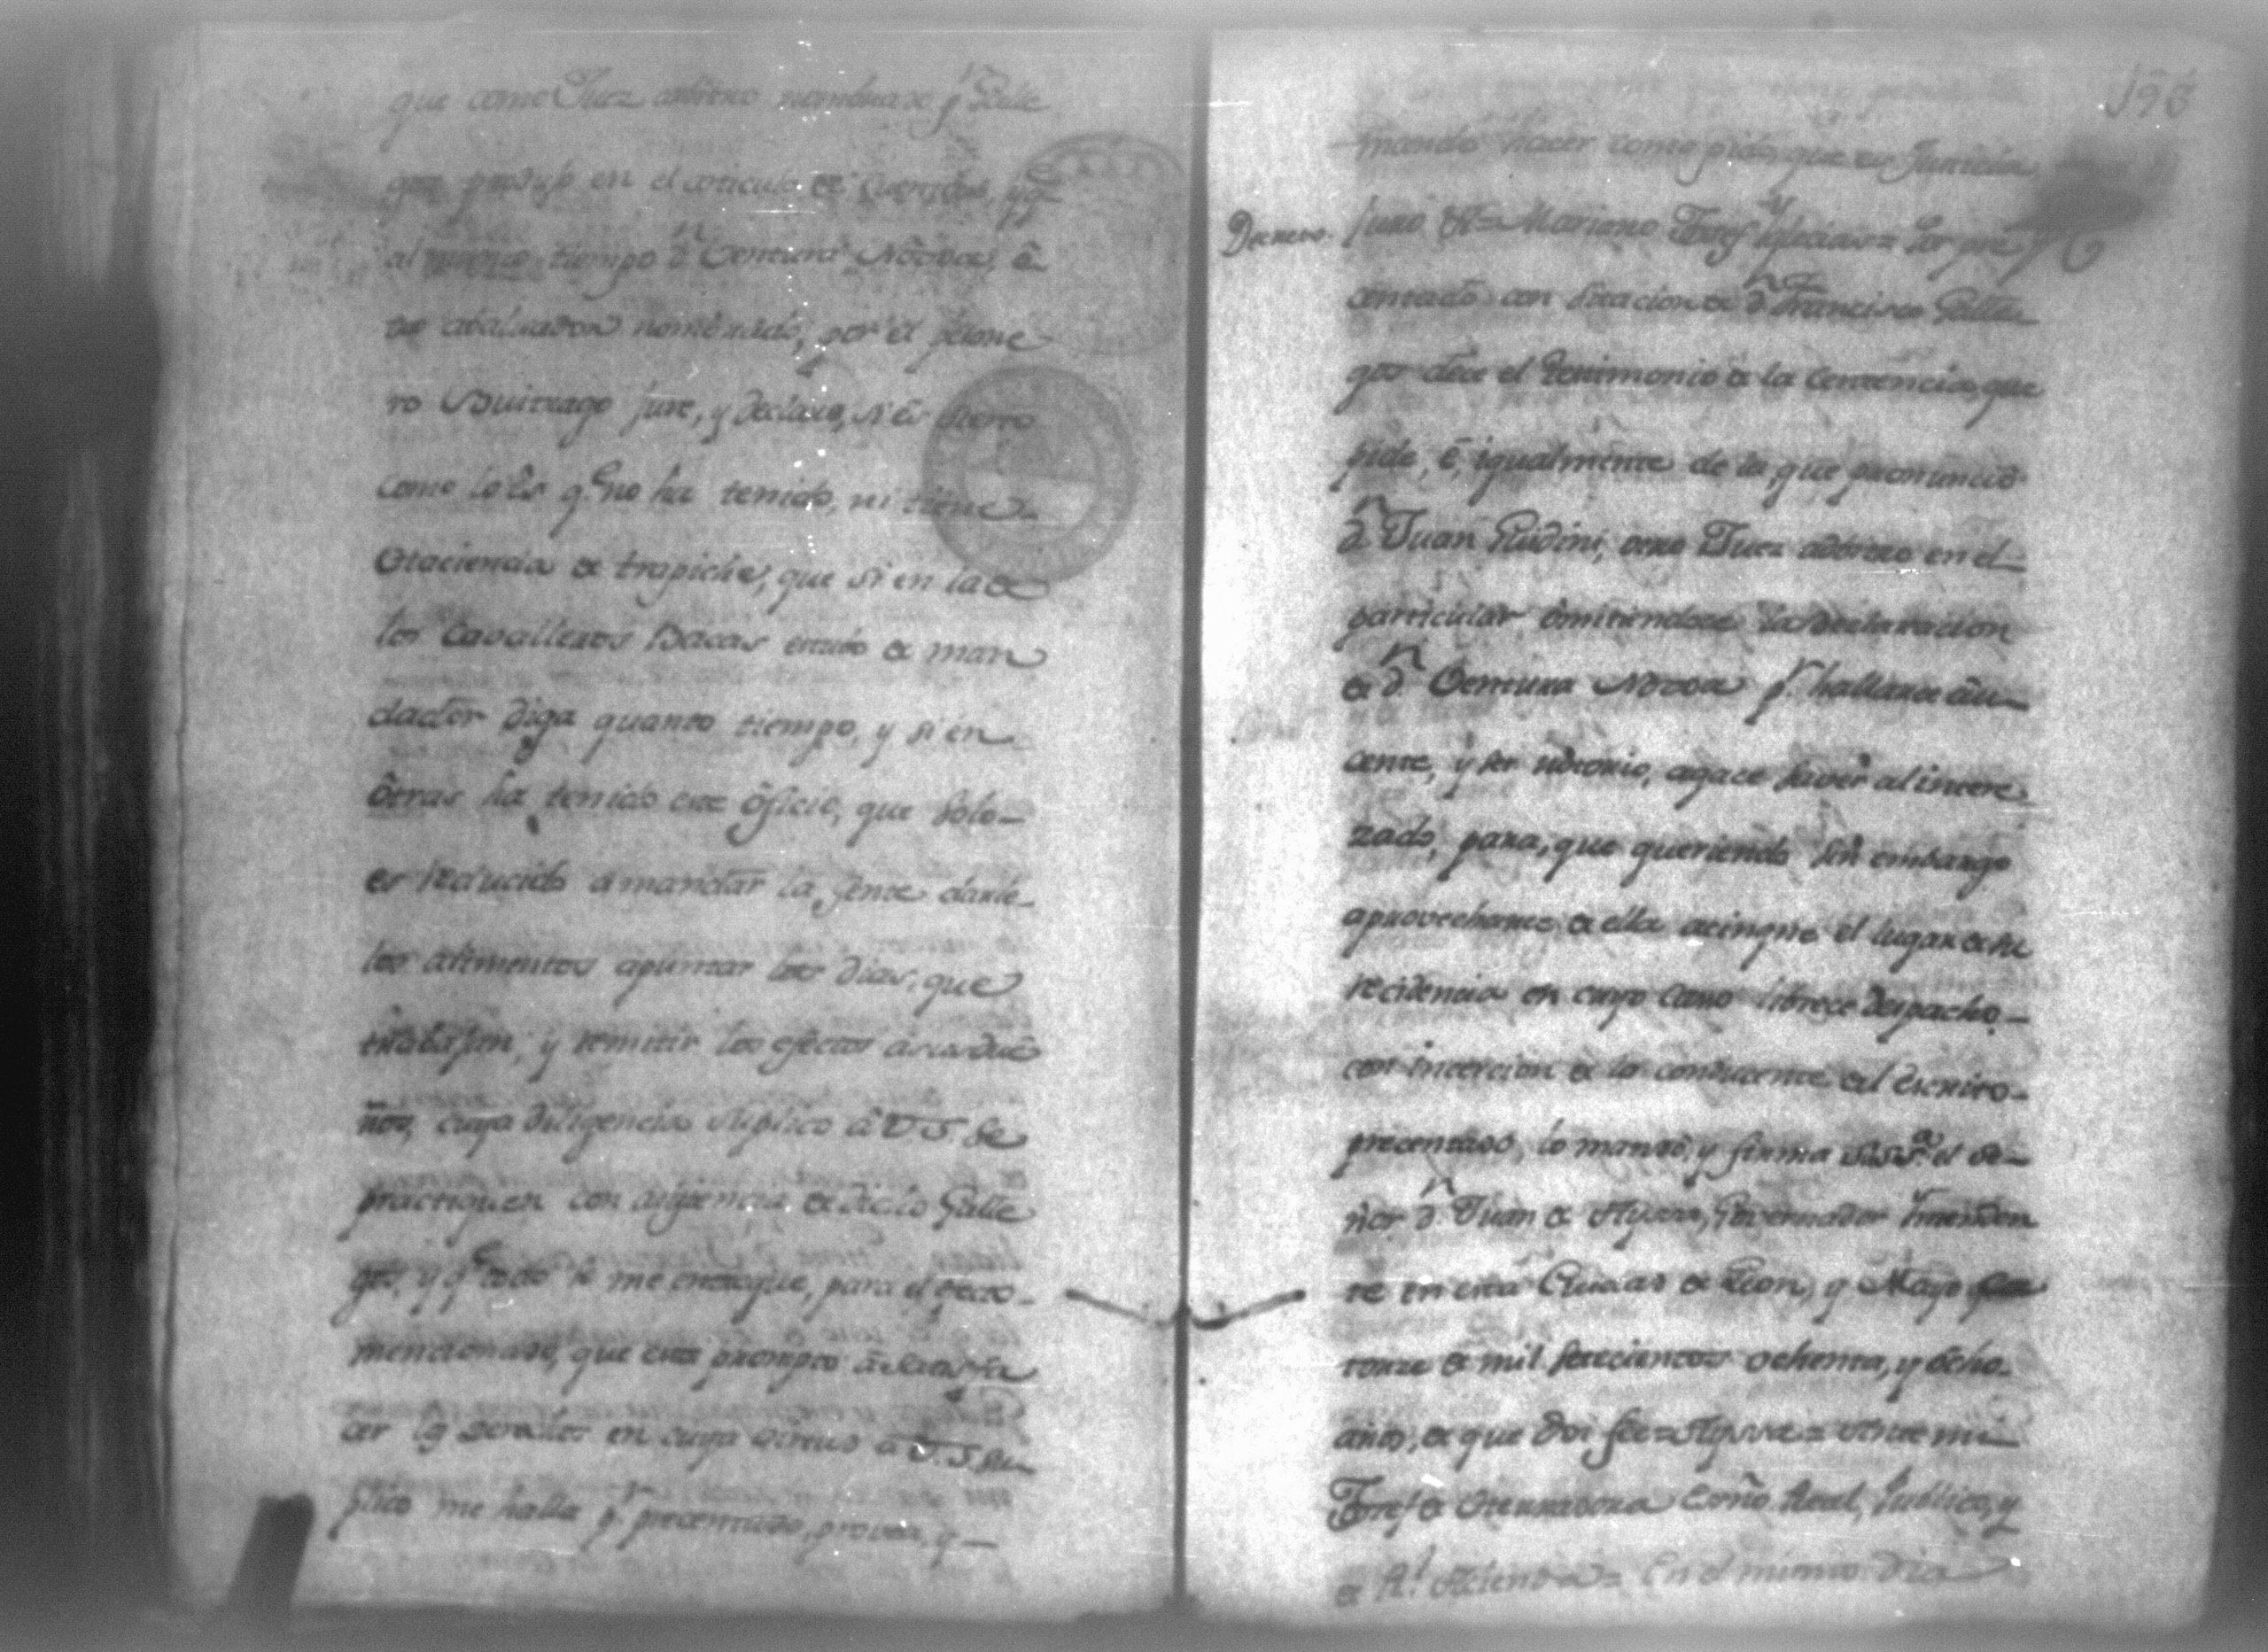 que como Juez arbitro nombrado pr. Galle
gos produjo en el articulo de cuentas, y qe.
al mismo tiempo dn. Ventura Novoa, ô
tro abaluador nombrado, por el prime
ro Buitrago jure, y declare, si es cierto
como lo és qe. no ha tenido, ni tiene
Hacienda de trapiche, que si en la de
los Cavalleros Bacas estubo de man
dador diga quanto tiempo, y si en
ôtras ha tenido este ôficio, que solo
es reducido a mandar la gente darle
los alimentos apuntar los dias, que
trabajan, y remitir los efectos a sus due
ños, cuya diligencia suplico â V.S. se
practiquen con audiencia de dicho Galle
gos, y qe. todo se me entregue, para el
mencionado, que está prompto â
cer los derechos en cuya virtud â V.S. su
plico me halla pr. precentado, provea, y
198
mande hacer como pido, que es Justicia
Decreto. juro &a.= Mariano Torres Yglecias= Por pre
centado con citacion de dn. Francisco Galle
gos dece el testimonio de la Centencia, que
pide, é, igualmente de la, que pronunció
dn. Juan Rudini, otro Juez adbitro en el
particular omitiendoce la declaracion
de dn. Ventura Novoa pr. hallarce au
cente, y ser notorio, agace saver al intere
zado, para, que queriendo sin embargo
aprovecharce de ella acinque el lugar de su
recidencia en cuyo caso librece despacho
con incercion de lo conducente del escrito
precentado, lo mandó, y firma su sa. el se
ñor dn. Juan de Ayssa, Governador Intenden
te en esta Ciudad de Leon, y Mayo ca
torce de mil setecientos ochenta, y ôcho
años, de que doi fee= Ayssa= Ante mi
Torres de Esno. Real, Publico, y
de Rl. Hacienda= En el mismo dia